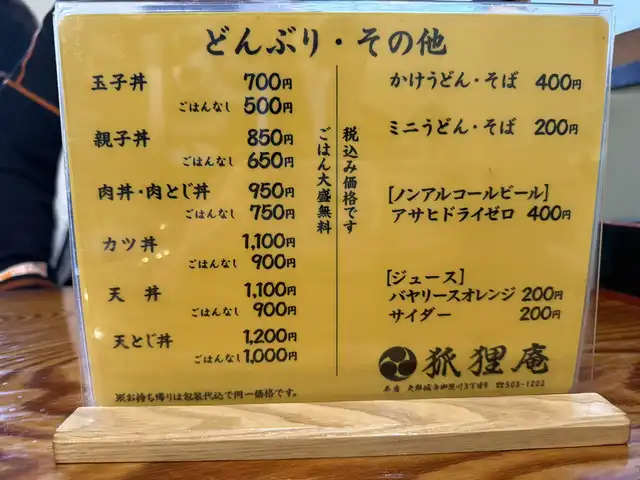 どんぶり・その他
玉子丼 700円
ごはんなし 500円
親子丼 850円
ごはんなし 650円
肉丼・肉とじ丼 950円
ごはんなし 750円
カツ丼 1,100円
ごはんなし 900円
天丼 1,100円
ごはんなし 900円
天とじ丼 1,200円
ごはんなし 1,000円
※お持ち帰りは包装代込で同一価格です。
税込み価格です
ごはん大盛無料
かけうどん・そば 400円
ミニうどん・そば 200円
[ノンアルコールビール]
アサヒドライゼロ 400円
[ジュース]
バヤリースオレンジ 200円
サイダー 200円
狐狸庵
本店 大野城市 3丁目9 ☎503-1202